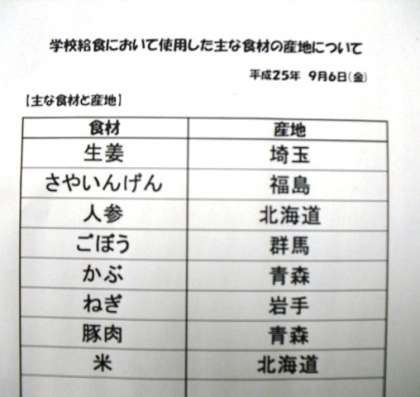 学校給食において使用した主な食材の産地について
平成25年 9月6日(金)
【主な食材と産地】
食材 産地
生姜 埼玉
さやいんげん 福島
人参 北海道
ごぼう 群馬
かぶ 青森
ねぎ 岩手
豚肉 青森
米 北海道